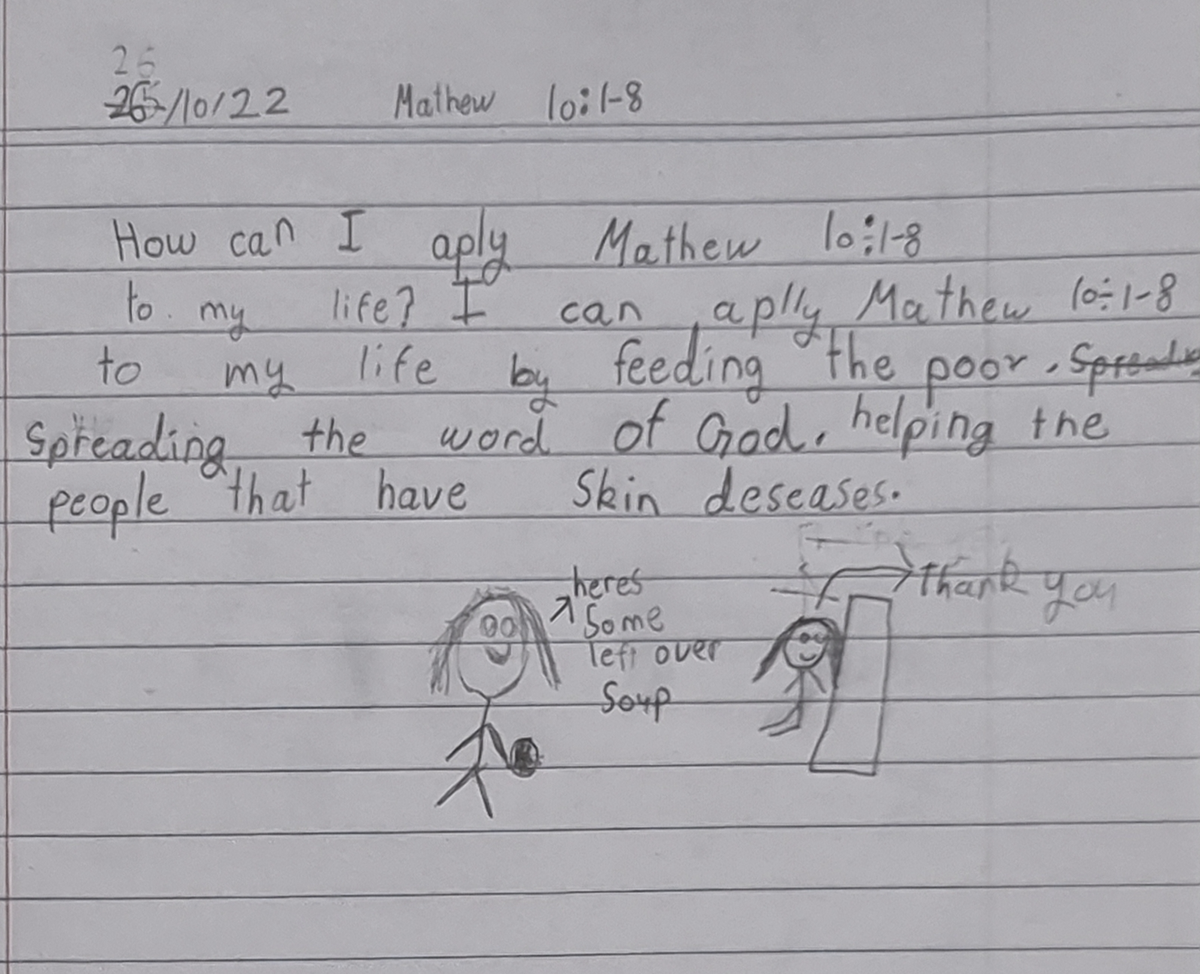 26
26/10/22 Mathew 10:1-8
How can I aply Mathew 10:1-8
to my life? I can aplly Mathew 10÷1-8
to my life by feeding the poor. Spreading
Spreading the word of God. helping the
people that have Skin deseases.
heres
Some
left over
Soup
Thank you